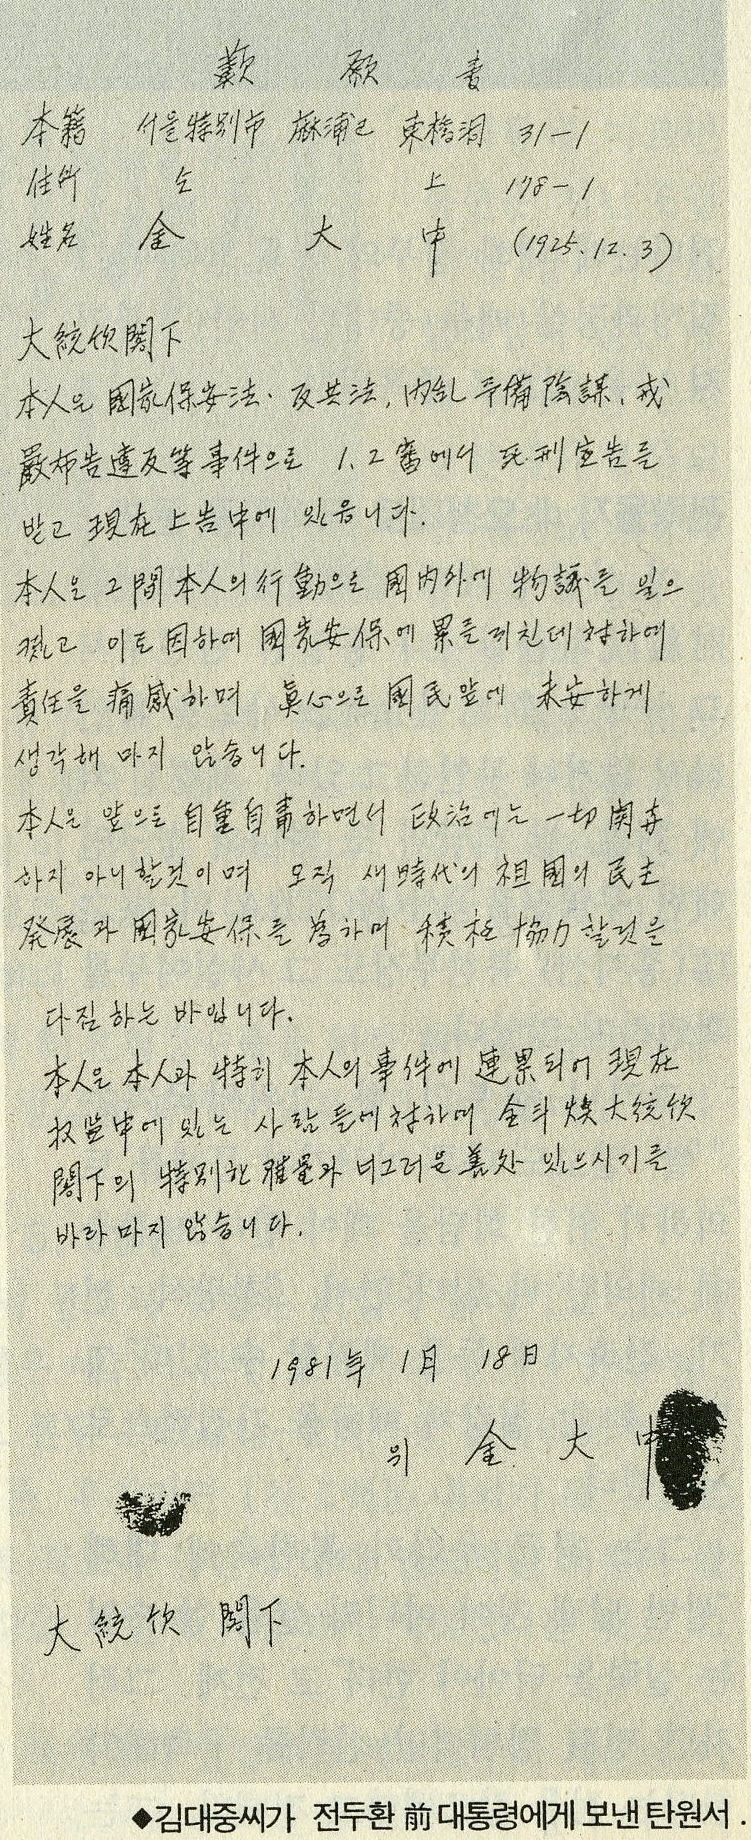 歎願書
本籍 서울特別市 麻浦區 東橋洞 31-1
住所 仝 上 178-1
姓名 金 大 中 (1925.12.3)
大統領閣下
本人은 國家保安法·反共法, 內乱予備陰謀, 戒
嚴布告違反等事件으로 1.2審에서 死刑宣告를
받고 現在 上告中에 있읍니다.
本人은 그間 本人의 行動으로 國內外에 物議를 일으
켰고 이로 因하여 國家安保에 累를 끼친데 對하여
責任을 痛感하며 眞心으로 國民앞에 未安하게
생각해 마지 않습니다.
本人은 앞으로 自重自肅하면서 政治에는 一切 関与
하지 아니할것이며 오직 새時代의 祖國의 民主
發展과 國家安保를 爲하여 積極 協力할것을
다짐하는 바입니다.
本人은 本人과 特히 本人의 事件에 連累되어 現在
收監中에 있는 사람들에 對하여 全斗煥大統領
閣下의 特別한 雅量과 너그러운 善処 있으시기를
바라마지 않습니다.
1981年 1月 18日
위 金 大 中
大統領 閣下
◆김대중씨가 전두환 前대통령에게 보낸 탄원서.